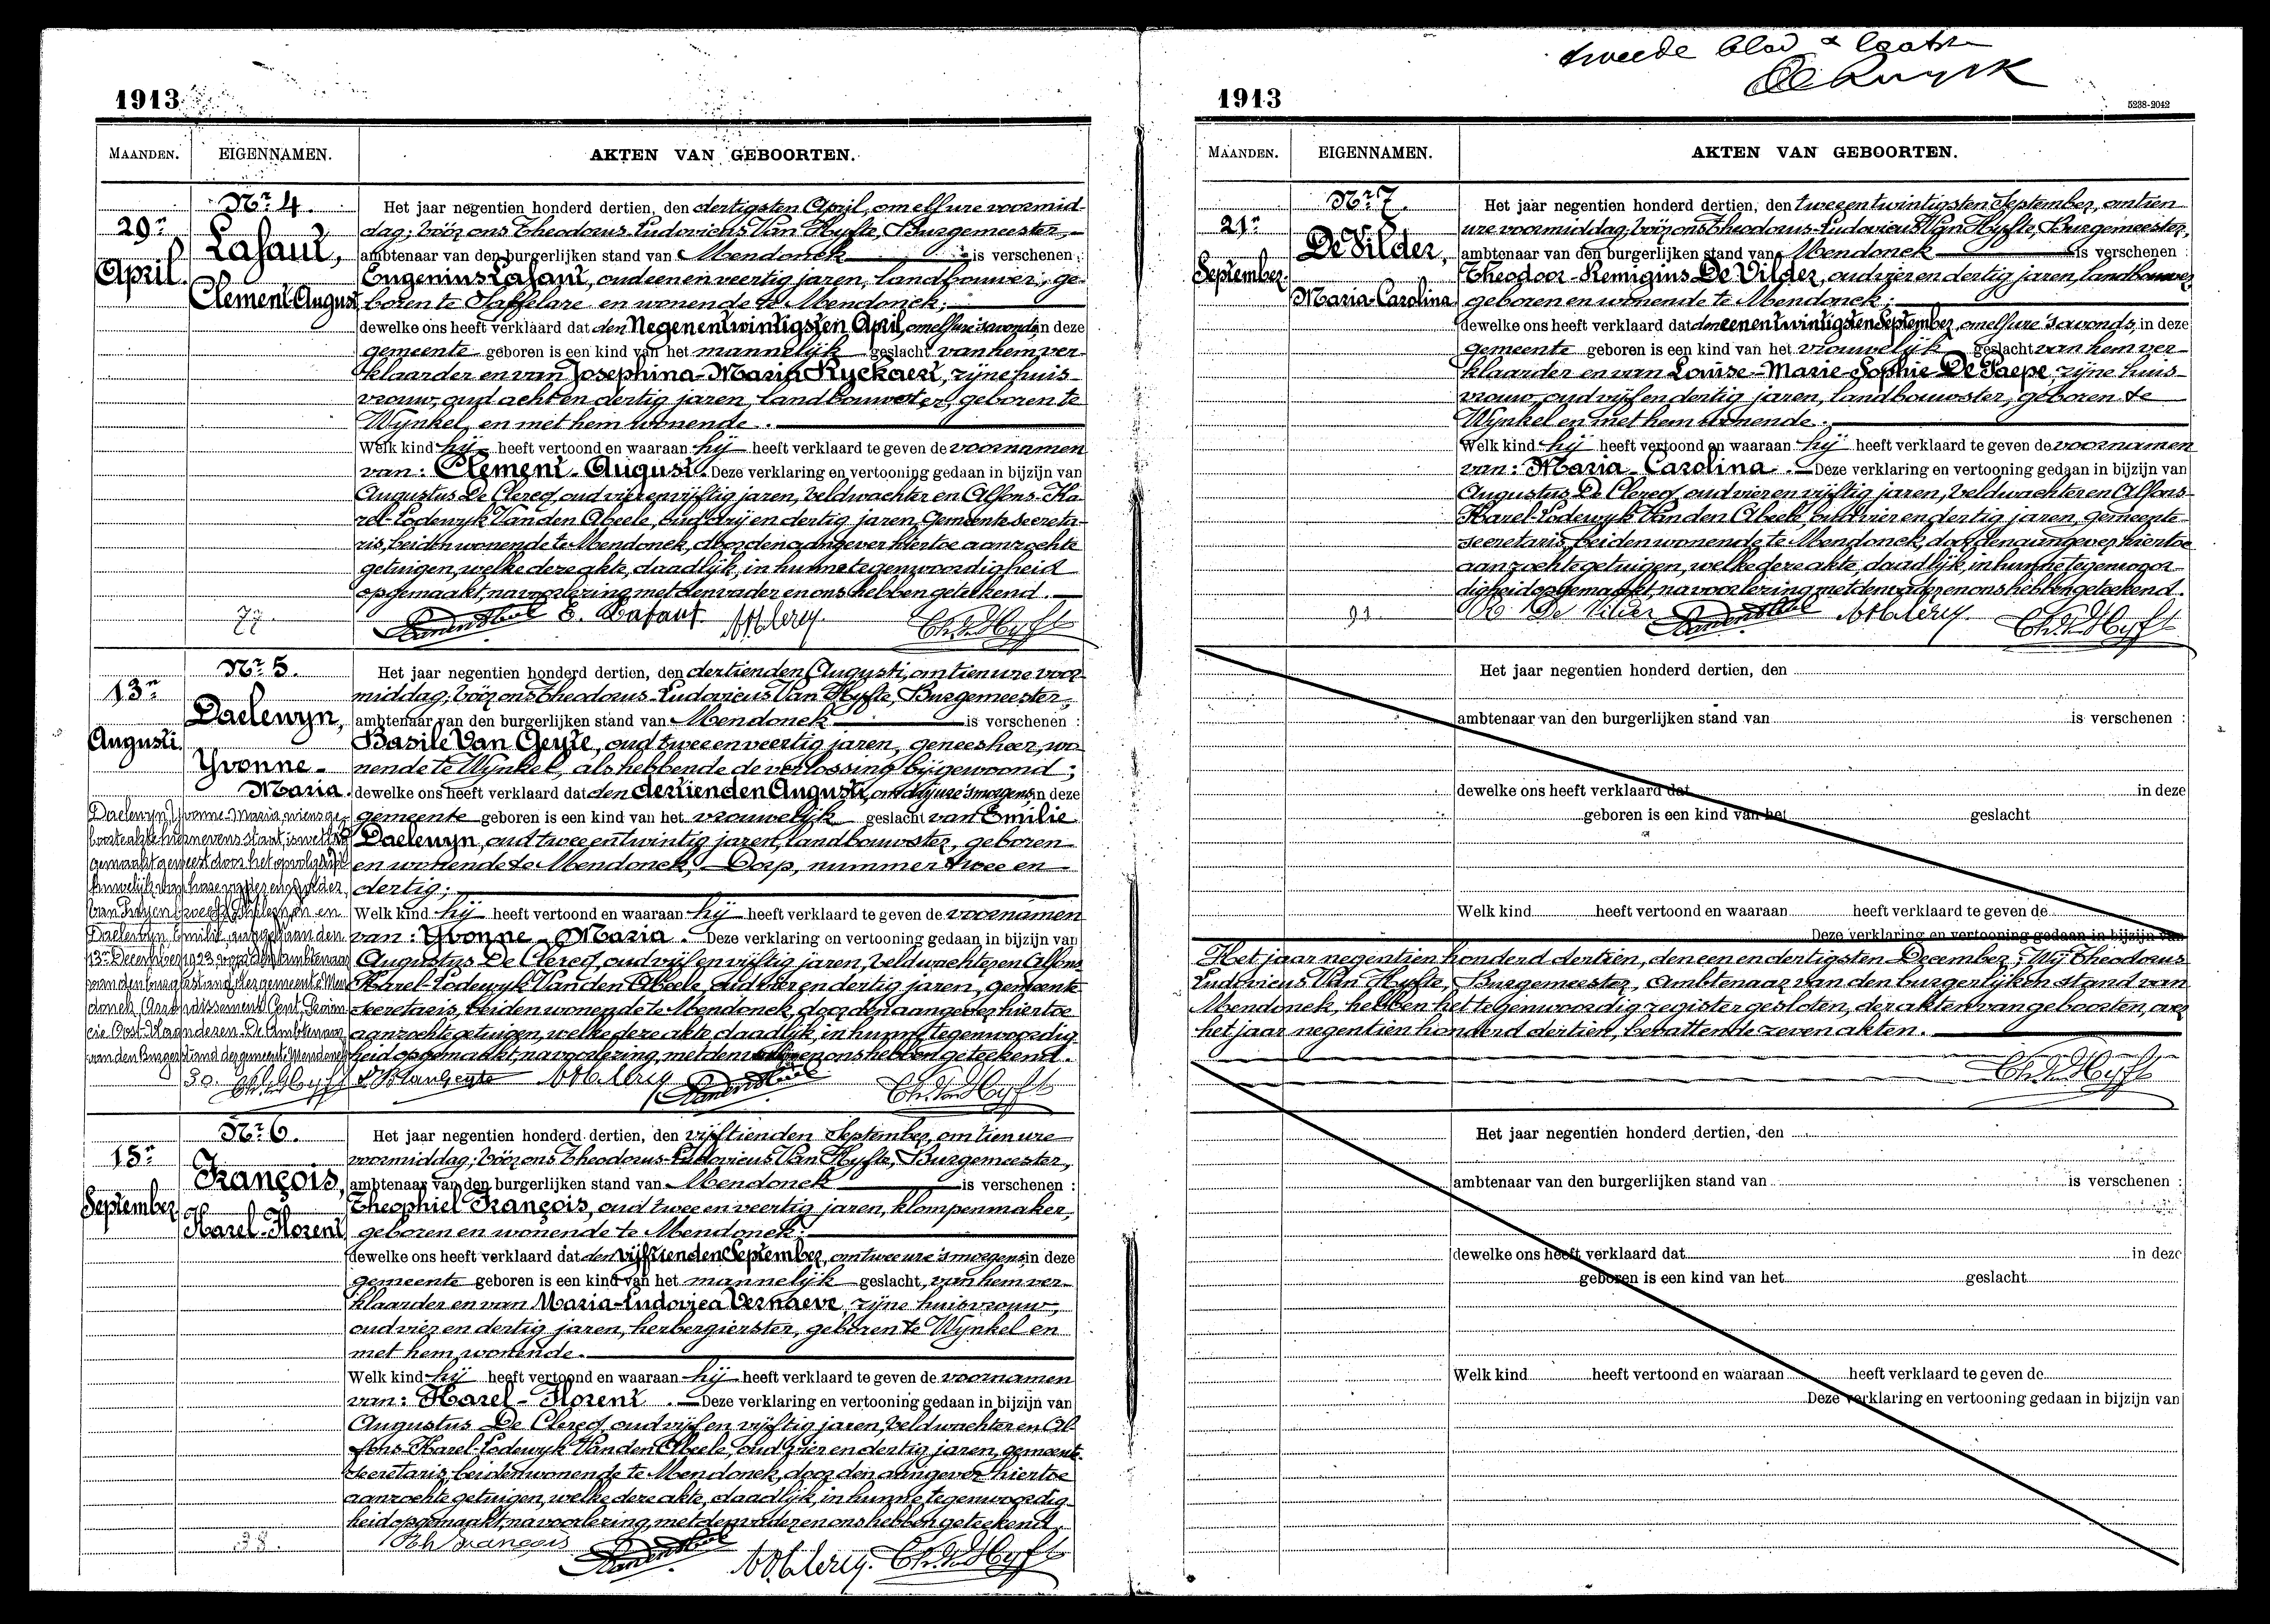 1913
MAANDEN.
EIGENNAMEN.
AKTEN VAN GEBOORTEN.
29n
April.
Nr 4.
Lafaut,
Clement-August
Het jaar negentien honderd dertien, den dertigsten April, om elf ure voormid-
dag; vóór ons Theodorus-Ludovicus Van Hyfte, Burgemeester,
ambtenaar van den burgerlijken stand van Mendonck is verschenen:
Eugenius Lafaut, oud een en veertig jaren, landbouwer, ge-
boren te Saffelare en wonende te Mendonck;
dewelke ons heeft verklaard dat den Negenentwintigsten April, om elf ure 's avonds, in deze
gemeente geboren is een kind van het mannelijk geslacht van hem ver-
klaarder en van Josephina-Maria Ryckaert, zijne huis-
vrouw, oud acht en dertig jaren, landbouwster, geboren te
Wynkel, en met hem wonende.
Welk kind hij heeft vertoond en waaraan hij heeft verklaard te geven de voornamen
van: Clement-August. Deze verklaring en vertooning gedaan in bijzijn van
Augustus De Clercq, oud vier en vijftig jaren, veldwachter en Alfons-Ka-
rel-Lodewyk Van den Abeele, oud drij en dertig jaren, Gemeentesecreta-
ris, beiden wonende te Mendonck, door den aangever hiertoe aanzochte
getuigen, welke deze akte, daadlijk, in hunne tegenwoordigheid
opgemaakt, na voorlezing met den vader en ons hebben geteekend.
E. Lafaut
13n
Augusti.
Nr 5.
Daelewyn,
Yvonne-
Maria.
Het jaar negentien honderd dertien, den dertienden Augusti, om tien ure voor-
middag; vóór ons Theodorus-Ludovicus Van Hyfte, Burgemeester,
ambtenaar van den burgerlijken stand van Mendonck is verschenen:
Basile Van Geyte, oud twee en veertig jaren, geneesheer, wo-
nende te Wynkel, als hebbende de verlossing bijgewoond;
dewelke ons heeft verklaard dat den dertienden Augusti, om drij ure 's morgens, in deze
gemeente geboren is een kind van het vrouwelijk geslacht van Emilie
Daelewyn, oud twee en twintig jaren, landbouwster, geboren
en wonende te Mendonck, Dorp, nummer twee en
dertig;
Welk kind hij heeft vertoond en waaraan hij heeft verklaard te geven de voornamen
van: Yvonne-Maria. Deze verklaring en vertooning gedaan in bijzijn van
Augustus De Clercq, oud vijf en vijftig jaren, veldwachter en Alfons-
Karel-Lodewyk Van den Abeele, oud vier en dertig jaren, gemeente-
secretaris, beiden wonende te Mendonck, door den aangever hiertoe
aanzochte getuigen, welke deze akte daadlijk, in hunne tegenwoordig-
heid opgemaakt, na voorlezing, met den en ons hebben geteekend.
Daelewyn, Yvonne-Maria, wiens ge-
boorteakte hiernevens staat, is wettig
gemaakt geweest door het opvolgelijk
huwelijk van hare vader en moeder,
en
Daelewyn Emilie, aangegaan den
13n December 1923, voor den ambtenaar
van den burgerstand der gemeente Men-
donck, Arrondissement Gent, Provin-
cie Oost-Vlaanderen. De Ambtenaar
van den Burgerstand der gemeente Mendonck
30.
15n
September.
Nr 6.
François,
Karel-Florent
Het jaar negentien honderd dertien, den vijftienden September, om tien ure
voormiddag; vóór ons Theodorus-Ludovicus Van Hyfte, Burgemeester,
ambtenaar van den burgerlijken stand van Mendonck is verschenen:
Theophiel François, oud twee en veertig jaren, klompenmaker,
geboren en wonende te Mendonck;
dewelke ons heeft verklaard dat den vijftienden September, om twee ure 's morgens, in deze
gemeente geboren is een kind van het mannelijk geslacht, van hem ver-
klaarder en van Maria-Ludovica Vernaeve, zijne huisvrouw,
oud vier en dertig jaren, herbergierster, geboren te Wynkel en
met hem wonende.
Welk kind hij heeft vertoond en waaraan hij heeft verklaard te geven de voornamen
van: Karel-Florent. Deze verklaring en vertooning gedaan in bijzijn van
Augustus De Clercq, oud vijf en vijftig jaren, veldwachter en Al-
fons-Karel-Lodewyk Van den Abeele, oud vier en dertig jaren, gemeente-
secretaris, beiden wonende te Mendonck, door den aangever hiertoe
aanzochte getuigen, welke deze akte, daadlijk, in hunne tegenwoordig-
heid opgemaakt, na voorlezing, met den vader en ons hebben geteekend.
38.
Th François
tweede blad & laatste
1913
5238-2042
MAANDEN.
EIGENNAMEN.
AKTEN VAN GEBOORTEN.
21n
September.
Nr 7.
De Vilder,
Maria-Carolina
Het jaar negentien honderd dertien, den tweeentwintigsten September, om tien
ure voormiddag; vóór ons Theodorus-Ludovicus Van Hyfte, Burgemeester,
ambtenaar van den burgerlijken stand van Mendonck is verschenen:
Theodoor-Remigius De Vilder, oud vier en dertig jaren, landbouwer,
geboren en wonende te Mendonck;
dewelke ons heeft verklaard dat den eenentwintigsten September, om elf ure 's avonds, in deze
gemeente geboren is een kind van het vrouwelijk geslacht van hem ver-
klaarder en van Louise-Marie-Sophie De Paepe, zijne huis-
vrouw, oud vijf en dertig jaren, landbouwster, geboren te
Wynkel en met hem wonende.
Welk kind hij heeft vertoond en waaraan hij heeft verklaard te geven de voornamen
van: Maria-Carolina. Deze verklaring en vertooning gedaan in bijzijn van
Augustus De Clercq, oud vier en vijftig jaren, veldwachter en Alfons-
Karel-Lodewyk Van den Abeele, oud vier en dertig jaren, gemeente-
secretaris, beiden wonende te Mendonck, door den aangever hiertoe
aanzochte getuigen, welke deze akte, daadlijk, in hunne tegenwoor-
digheid opgemaakt, na voorlezing, met den vader en ons hebben geteekend.
R. De Vilder
Het jaar negentien honderd dertien, den
ambtenaar van den burgerlijken stand van is verschenen :
dewelke ons heeft verklaard dat in deze
geboren is een kind van het geslacht
Welk kind heeft vertoond en waaraan heeft verklaard te geven de
Deze verklaring en vertooning gedaan in bijzijn van
Het jaar negentien honderd dertien, den een en dertigsten December, Wij Theodorus-
Ludovicus Van Hyfte, Burgemeester, Ambtenaar van den burgerlijken stand van
Mendonck, hebben het tegenwoordig register gesloten, der akten van geboorten, over
het jaar negentien honderd dertien, bevattende zeven akten.
Het jaar negentien honderd dertien, den
ambtenaar van den burgerlijken stand van is verschenen :
dewelke ons heeft verklaard dat in deze
geboren is een kind van het geslacht
Welk kind heeft vertoond en waaraan heeft verklaard te geven de
Deze verklaring en vertooning gedaan in bijzijn van